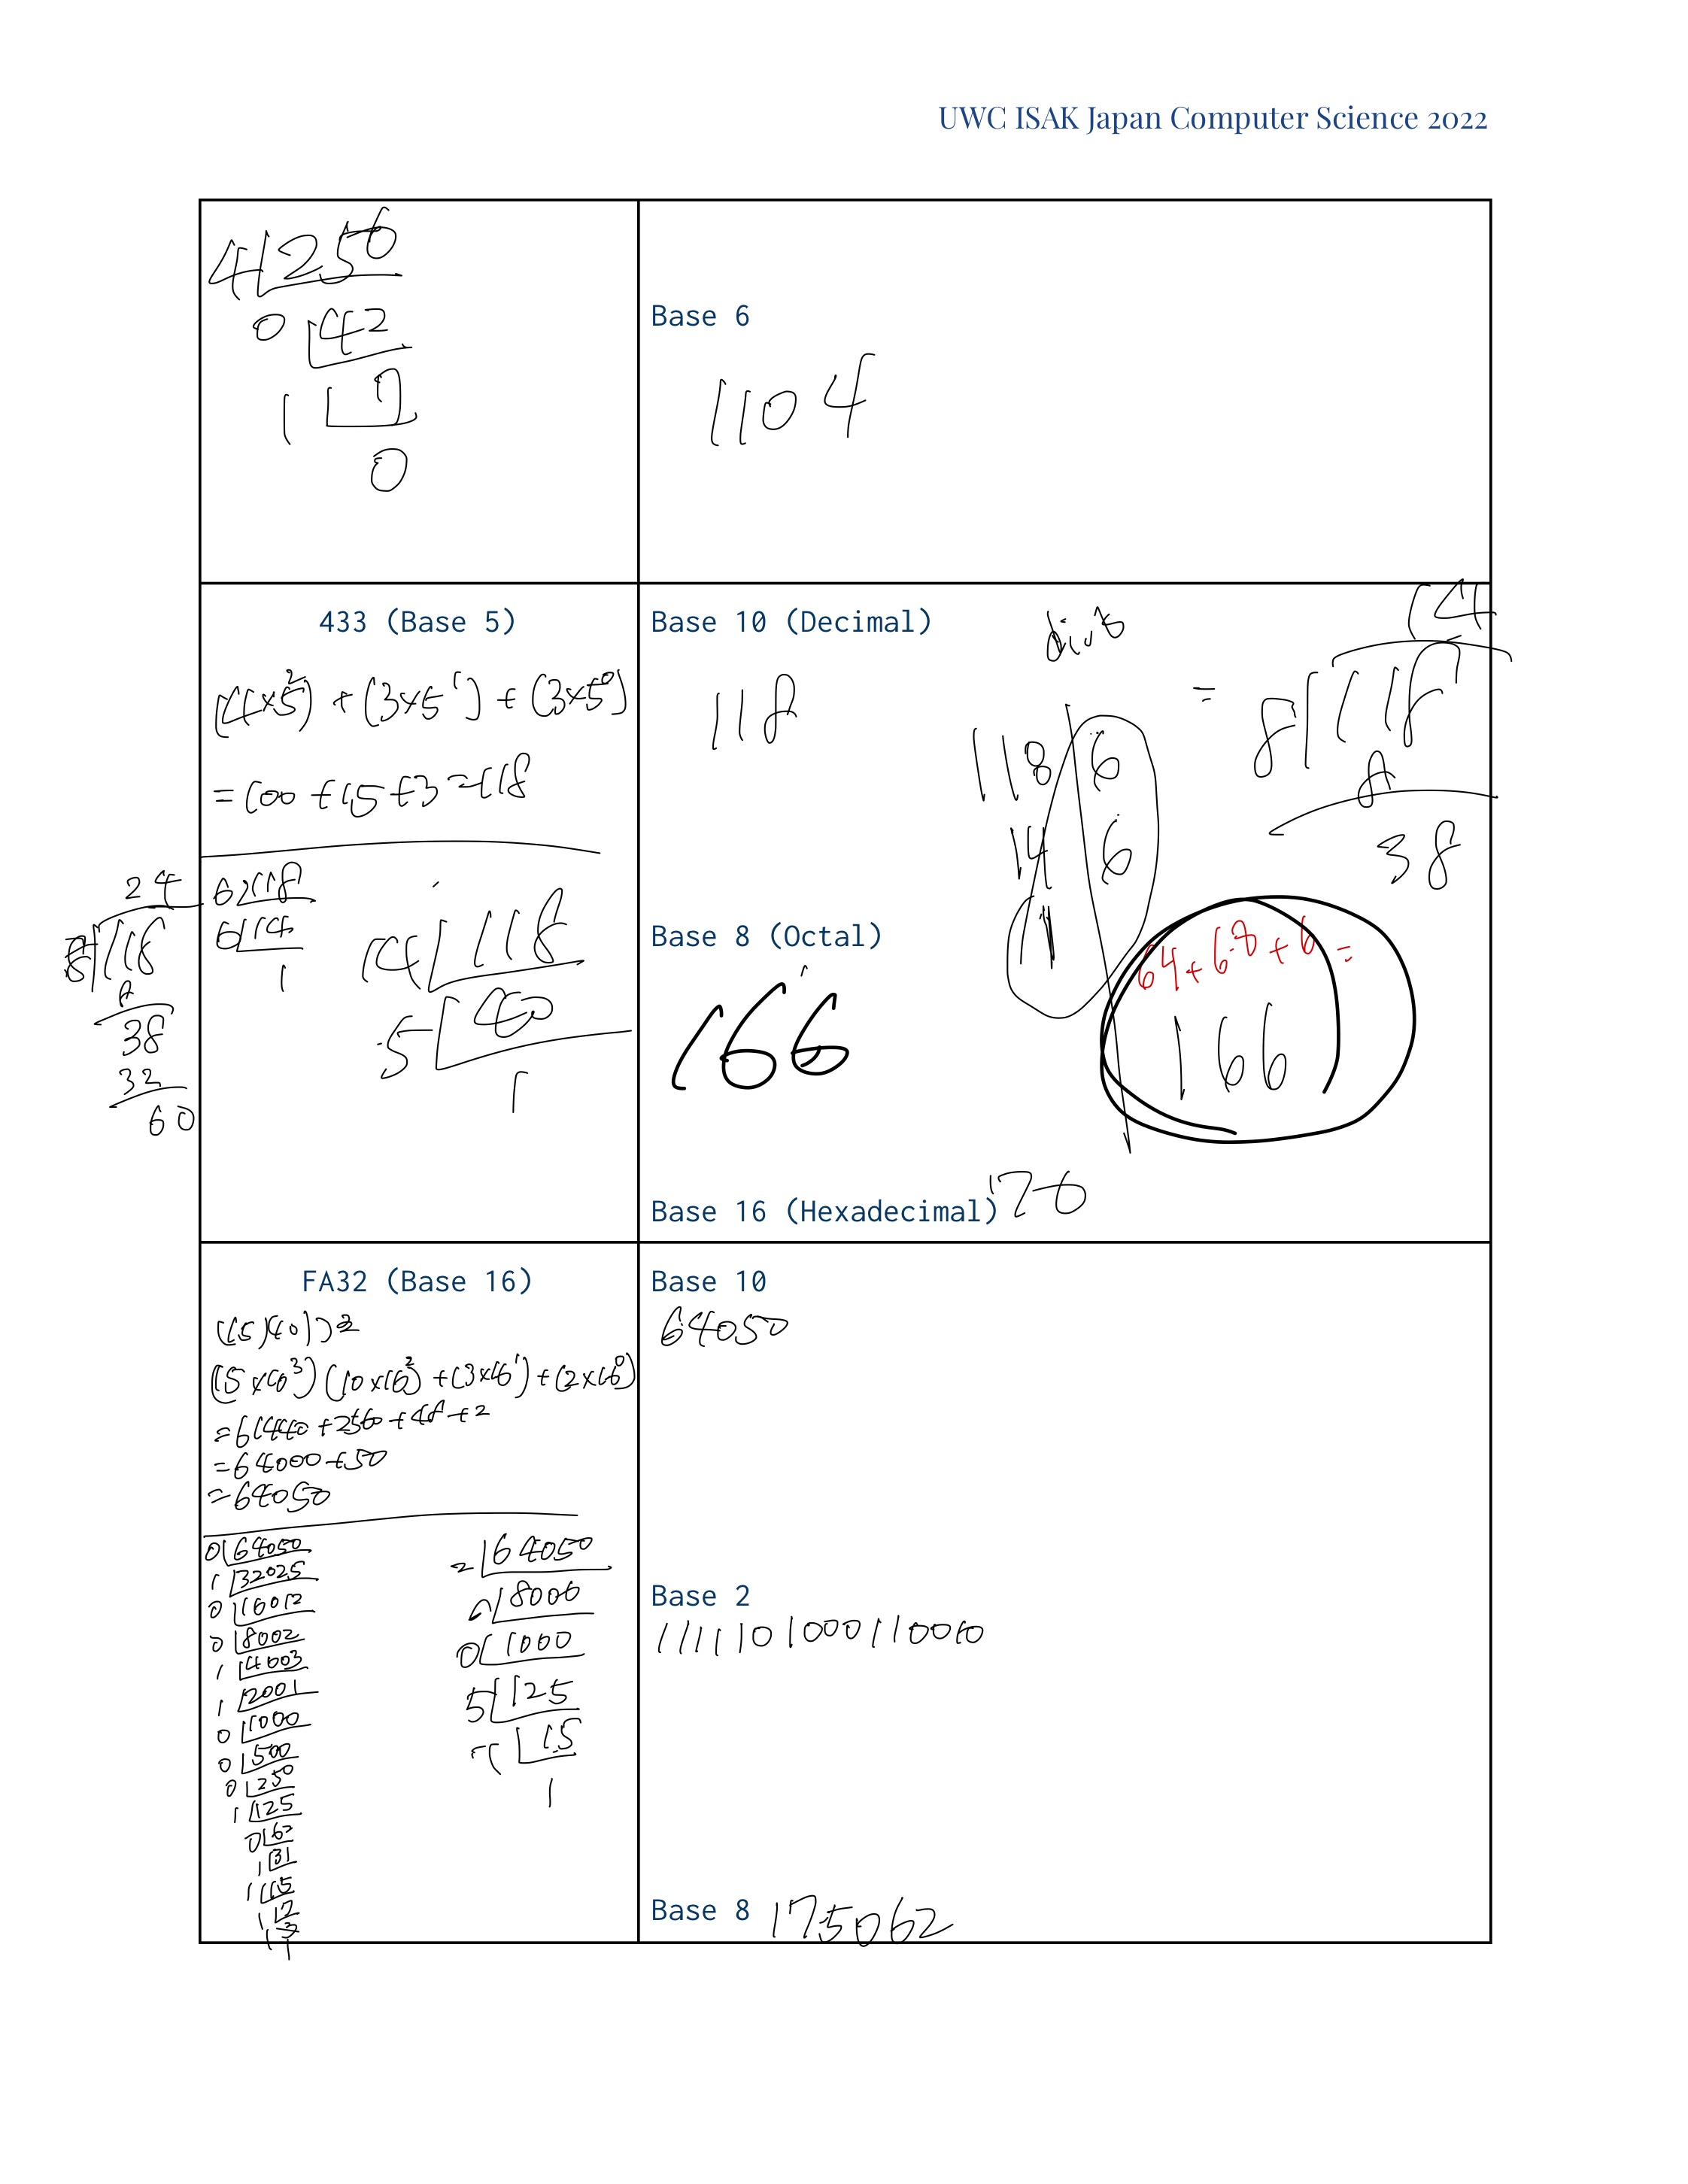 UWC ISAK Japan Computer Science 2022
4 256
0 42
1 7
0
Base 6
1104
433 (Base 5)
(4×5²) + (3×5¹) + (3×5⁰)
= 100 + 15 + 3 = 118
6 118
6 14
1
24
8 118
38
32
60
14 118
5 40
1
Base 10 (Decimal)
118
118 6
14 6
1
= 14
8 118
8
38
Base 8 (Octal)
166
64 + 6·8 + 6 =
166
Base 16 (Hexadecimal) 76
FA32 (Base 16)
(15)(10)32
(15×16³) (10×16²) + (3×16¹) + (2×16⁰)
= 61440 + 2560 + 48 + 2
= 64000 + 50
= 64050
0 64050
1 32025
0 16012
0 8002
1 4003
1 2001
0 1000
0 500
0 250
1 125
0 62
1 31
1 15
1 7
1 3
1
2 64050
6 8006
0 1000
5 125
7 15
1
Base 10
64050
Base 2
1111101000110010
Base 8 175062